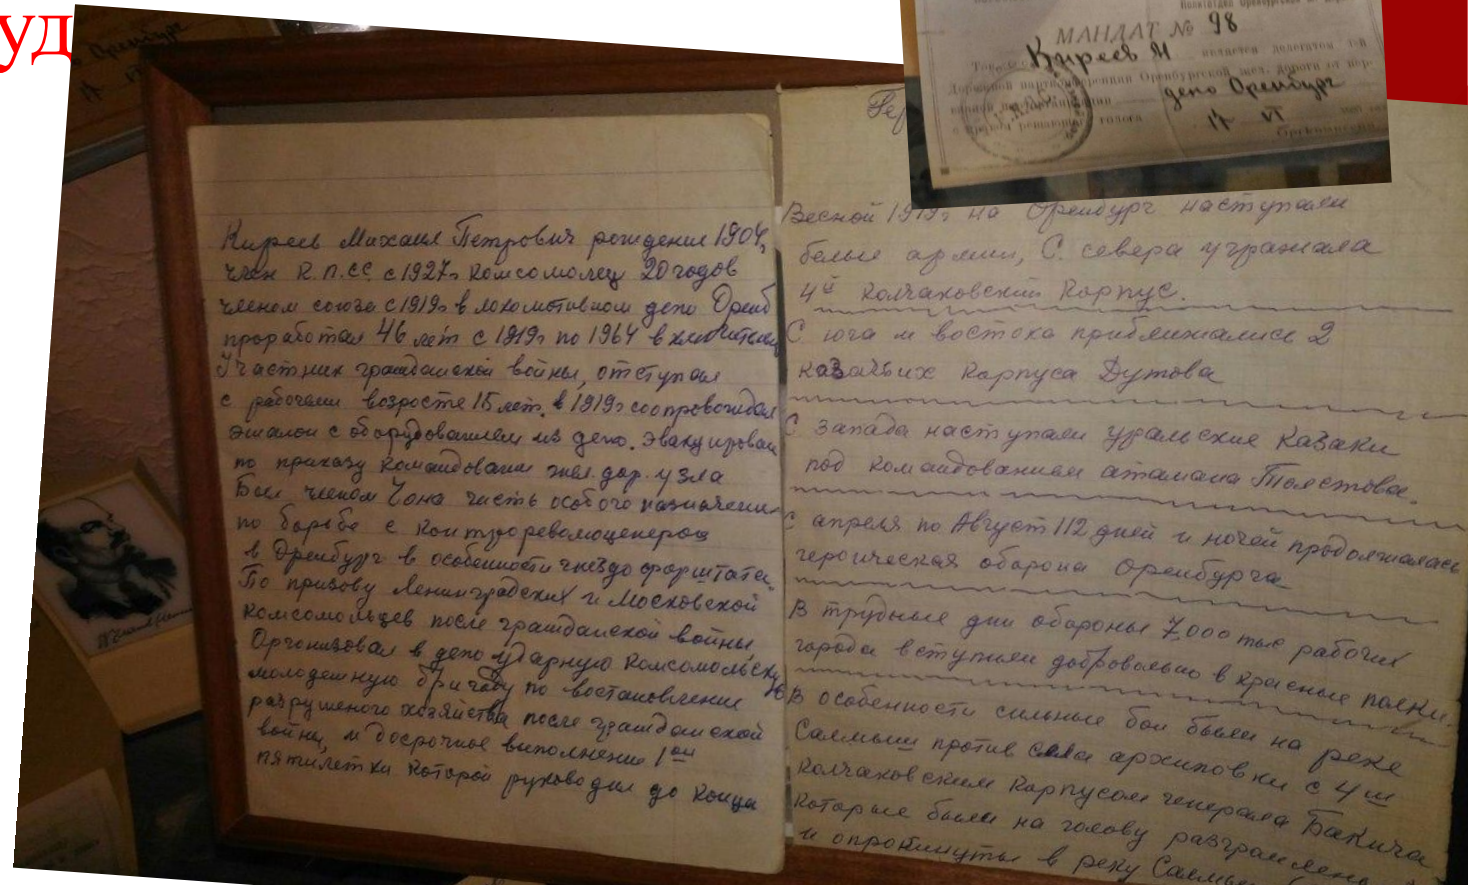 уд
Оренбург
17
МАНДАТ № 98
Киреев М является делегатом 1-й
Дорожной партконференции Оренбургской жел. дороги от пер-
депо Оренбург
с правом решающего голоса
17 VI
Киреев Михаил Петрович рождения 1904г
член К.П.СС. с 1927г комсомолец 20 годов
членом союза с 1919г в локомотивном депо Оренб
проработал 46 лет с 1919г по 1964
Участник гражданской войны, отступал
с рабочими возросте 15 лет. в 1919г соопровождал
эшалон с оборудованием из депо. эвакуирован
по приказу командования жел. дор. узла
Был членом Чона часть особого назначения
по борьбе с контрреволюционеров
в Оренбург в особенности гнездо форштата
По призову Ленинградских и Московской
комсомольцев после гражданской войны
Организовал в депо ударную комсомольску
молодежную бригаду по востановление
разрушеного хозяйства после гражданской
войны, и досрочное выполнение 1ой
пятилетки которой руководил до конца
Весной 1919г на Оренбург наступали
белые армии, С. севера угражала
4й колчаковский корпус.
С юга и востока приближались 2
казачьих корпуса Дутова
С запада наступали уральские казаки
под командованием атамана Толстова.
С апреля по Август 112 дней и ночей продолжалась
героическая оборона Оренбурга
В трудные дни обороны 7,000 тыс рабочих
города вступили добровольно в красные полки.
В особенности сильные бои были на реке
Салмыш против села архиповки с 4ым
колчаковским корпусом генерала Бакича
которые были на голову разгромлены
и опрокинуты в реку Салмыш